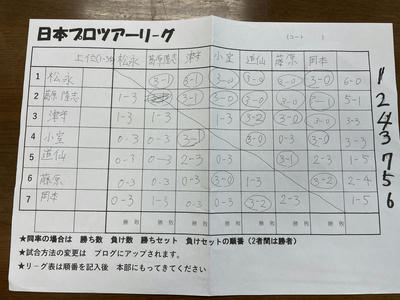 日本プロツアーリーグ
(コート )
上位(1~3位) 松永 葛原隆志 津守 小室 道仙 藤原 岡本
1 松永 3-1 3-1 3-0 3-0 3-0 3-0 6-0 1
2 葛原 隆志 1-3 3-1 3-0 3-0 3-0 3-1 5-1 2
3 津守 1-3 1-3 1-3 3-2 3-0 3-0 3-3 4
4 小室 0-3 0-3 3-1 3-0 0-3 3-0 3-3 3
5 道仙 0-3 0-3 2-3 0-3 3-1 2-3 1-5 7
6 藤原 0-3 0-3 0-3 3-0 1-3 3-2 2-4 5
7 岡本 0-3 1-3 0-3 0-3 3-2 2-3 1-5 6
勝 敗 勝 敗 勝 敗 勝 敗 勝 敗 勝 敗 勝 敗
★同率の場合は 勝ち数 負け数 勝ちセット 負けセットの順番 (2者間は勝者)
★試合方法の変更は ブログにアップされます。
★リーグ表は順番を記入後 本部にもってきてください